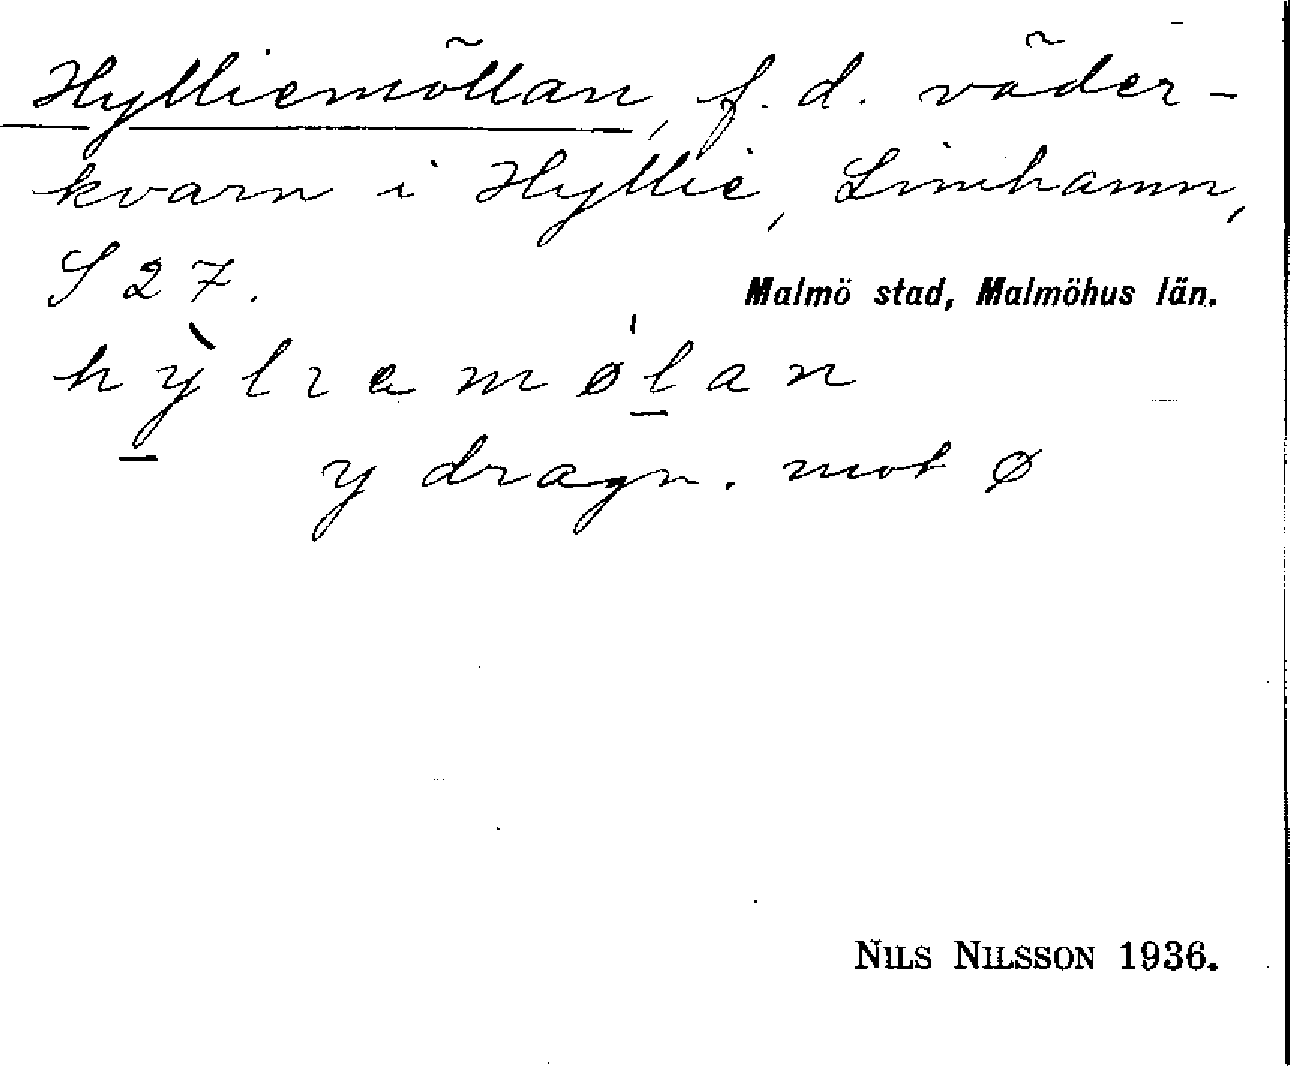 Hylliemöllan, f. d. väder-
kvarn i Hyllie, Limhamn,
S 27.
Malmö stad, Malmöhus län.
hỳ̱lıamø̱ĺan
y dragn. mot ø
NILS NILSSON 1936.